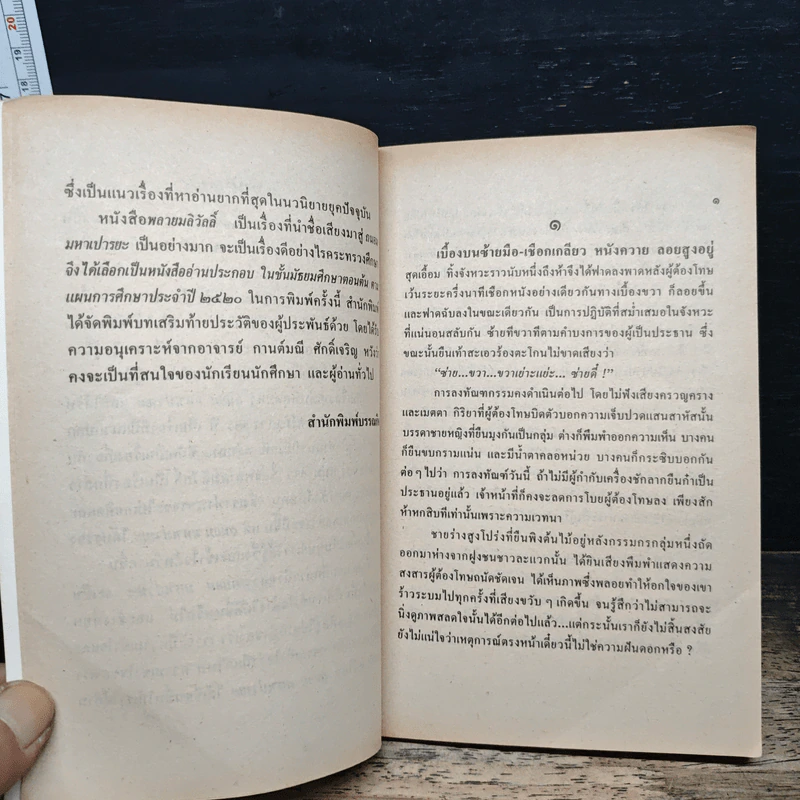 ซึ่งเป็นแนวเรื่องที่หาอ่านยากที่สุดในนวนิยายยุคปัจจุบัน
หนังสือพลายมลิวัลลิ์ เป็นเรื่องที่นำชื่อเสียงมาสู่ ถนอม
มหาเปารยะ เป็นอย่างมาก จะเป็นเรื่องดีอย่างไรกระทรวงศึกษา
จึงได้เลือกเป็นหนังสืออ่านประกอบ ในชั้นมัธยมศึกษาตอนต้น ตาม
แผนการศึกษาประจำปี ๒๕๒๐ ในการพิมพ์ครั้งนี้ สำนักพิมพ์
ได้จัดพิมพ์บทเสริมท้ายประวัติของผู้ประพันธ์ด้วย โดยได้รับ
ความอนุเคราะห์จากอาจารย์ กานต์มณี ศักดิ์เจริญ หวังว่า
คงจะเป็นที่สนใจของนักเรียนนักศึกษา และผู้อ่านทั่วไป
สำนักพิมพ์บรรณกิจ
๑
๑
เบื้องบนซ้ายมือ-เชือกเกลียว หนังควาย ลอยสูงอยู่
สุดเอื้อม ทิ้งจังหวะราวนับหนึ่งถึงห้าจึงได้ฟาดลงพาดหลังผู้ต้องโทษ
เว้นระยะครึ่งนาทีเชือกหนังอย่างเดียวกันทางเบื้องขวา ก็ลอยขึ้น
และฟาดฉับลงในขณะเดียวกัน เป็นการปฏิบัติที่สม่ำเสมอในจังหวะ
ที่แน่นอนสลับกัน ซ้ายทีขวาทีตามคำบงการของผู้เป็นประธาน ซึ่ง
ขณะนั้นยืนเท้าสะเอวร้องตะโกนไม่ขาดเสียงว่า
“ซ่าย...ขวา...ขวาเย่าะแย่ะ... ซ่ายดี๋ !”
การลงทัณฑกรรมคงดำเนินต่อไป โดยไม่ฟังเสียงครวญคราง
และเมตตา กิริยาที่ผู้ต้องโทษบิดตัวบอกความเจ็บปวดแสนสาหัสนั้น
บรรดาชายหญิงที่ยืนมุงกันเป็นกลุ่ม ต่างก็พึมพำออกความเห็น บางคน
ก็ยืนขบกรามแน่น และมีน้ำตาคลอหน่วย บางคนก็กระซิบบอกกัน
ต่อๆ ไปว่า การลงทัณฑ์วันนี้ ถ้าไม่มีผู้กำกับเครื่องชักลากยืนกำเป็น
ประธานอยู่แล้ว เจ้าหน้าที่ก็คงจะลดการโบยผู้ต้องโทษลง เพียงสัก
ห้าหกสิบทีเท่านั้นเพราะความเวทนา
ชายร่างสูงโปร่งที่ยืนพิงต้นไม้อยู่หลังกรรมกรกลุ่มหนึ่งถัด
ออกมาห่างจากฝูงชนชาวละแวกนั้น ได้ยินเสียงพึมพำแสดงความ
สงสารผู้ต้องโทษถนัดชัดเจน ได้เห็นภาพซึ่งพลอยทำให้อกใจของเขา
ร้าวระบมไปทุกครั้งที่เสียงขวับ ๆ เกิดขึ้น จนรู้สึกว่าไม่สามารถจะ
นิ่งดูภาพสลดใจนั้นได้อีกต่อไปแล้ว...แต่กระนั้นเราก็ยังไม่สิ้นสงสัย
ยังไม่แน่ใจว่าเหตุการณ์ตรงหน้าเดี๋ยวนี้ไม่ใช่ความฝันดอกหรือ ?